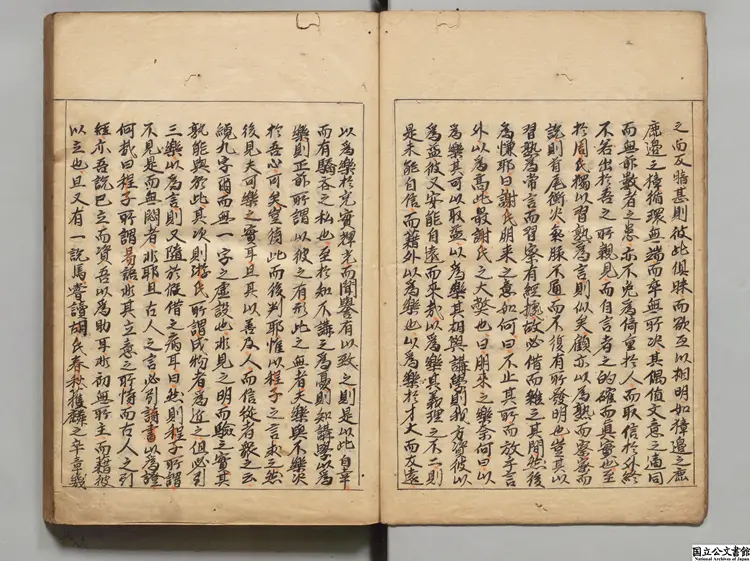 之而反晦甚則彼此俱昧而欲互以相明如獐邊之鹿
鹿邊之獐循環無端而卒無所決其偶值文意之適同
而無訴數者之患亦不免為倚重於人而取信於外終
不若出於吾之所親見而自言者之的確而真實也至
於周氏獨以習熟為言則似矣顧亦以為熟而察察而
說則有尾衡火氣脉不通而不復有所發明也豈其以
習熟為常言而習察有經據故必借而雜之其間然後
為慊耶曰謝氏朋來之意如何曰不止其所而放乎言
外以為高此最謝氏之大獘也曰朋來之樂奈何曰以
為樂其可以取益以為樂其相與講學則我方資彼以
為益彼又安能自遠而來哉以為樂其義理之不二則
是未能自信而藉外以為樂也以為樂於才大而友遠
以為樂於充實輝光而聞譽有以致之則是以此自幸
而有驕吝之私也至於知不講之為憂則知講學以為
樂則正所謂以彼之有形此之無者夫樂與不樂決
於吾心可矣奚待此而後判耶惟以程子之言求之然
後見夫可樂之實耳且其以善及人而信從者衆之云
纔九字爾而無一字之虛設也非見之明而驗之實其
孰能與於此其次則游氏所謂成物者為近之但必引
三樂以為言則又隨於假借之病耳曰然則程子所謂
不見是而無悶者非耶且古人之言必引詩書以為證
何哉曰程子所謂易語非其立意之所恃而古人之引
經亦吾說已立而資吾以為助耳非初無所主而藉彼
以立也且又有一說焉嘗讀胡氏春秋獲麟之卒章幾
国立公文書館
National Archives of Japan